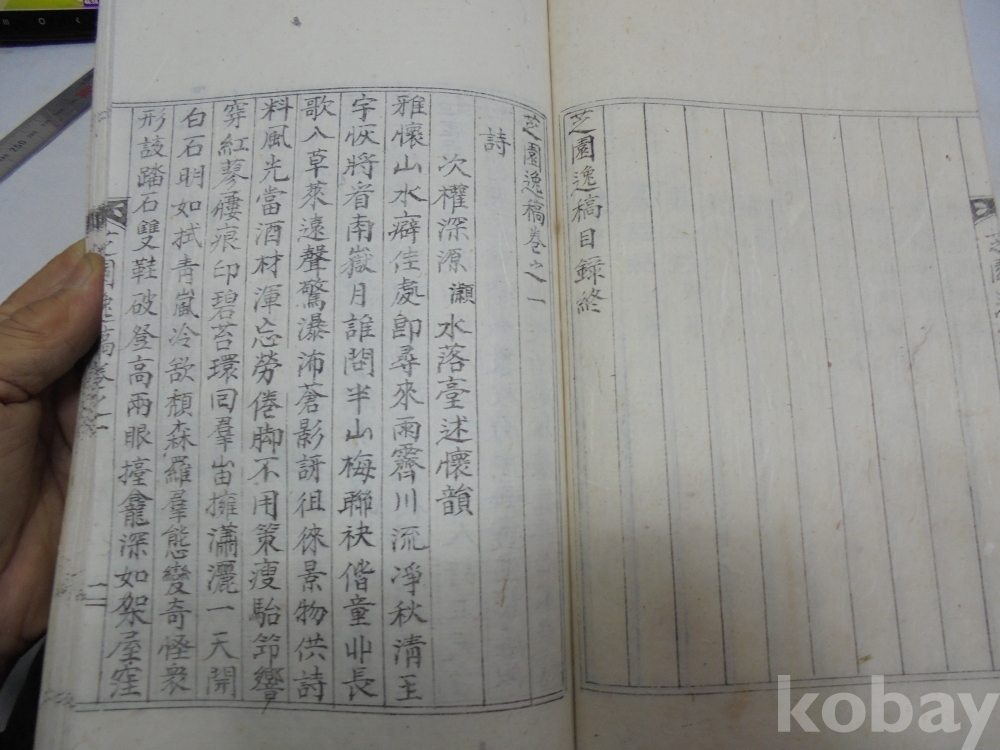 芝園逸稿目録終
芝園逸稿卷之一
詩
次權深源 灝 水落臺述懷韻
雅懷山水癖佳處卽尋來雨霽川流淨秋淸玉
宇恢將看南嶽月誰問半山梅聯袂偕童丱長
歌入草萊遠聲驚瀑沛蒼影訝徂徠景物供詩
料風光當酒材渾忘勞倦脚不用策瘦駘筇響
穿紅蓼屨痕印碧苔環回羣岫擁瀟灑一天開
白石明如拭靑嵐冷欲頹森羅羣態變奇怪衆
形詼踏石雙鞋破登高兩眼擡龕深如架屋窪
芝園逸稿卷之一
一
kobay